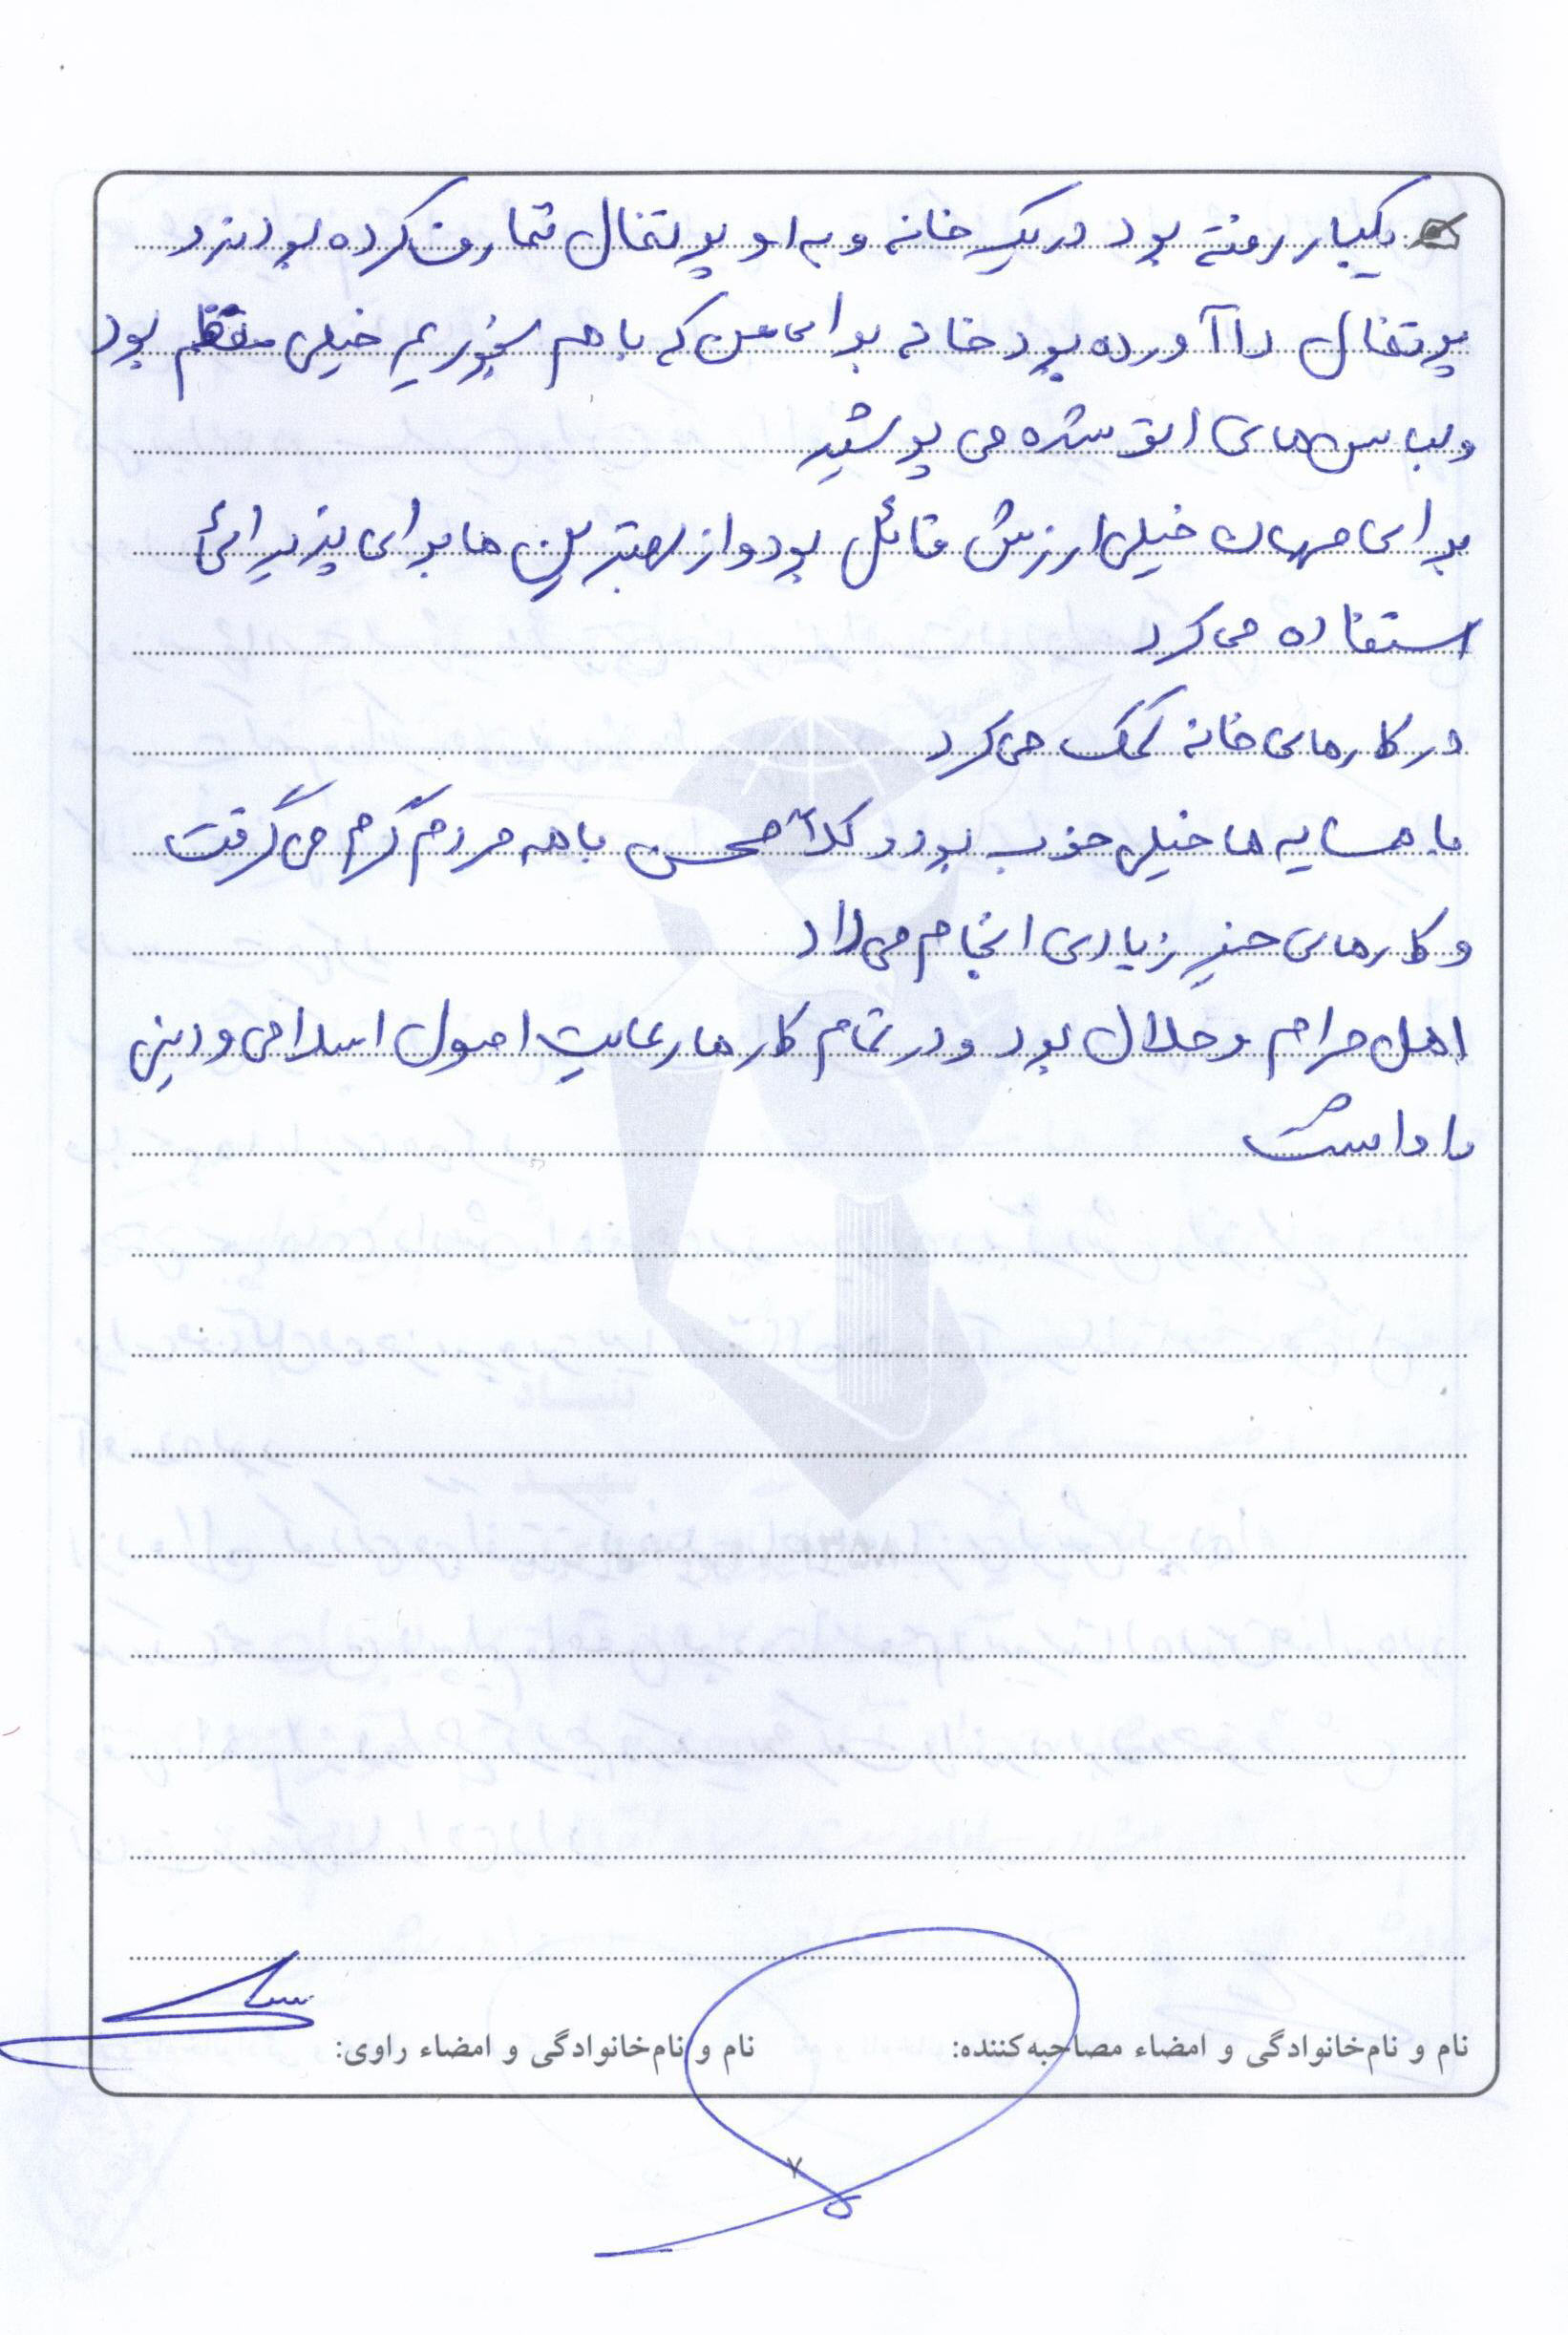 یکبار رفته بود در یک خانه و به او پرتقال تعارف کرده بودند و
پرتقال را آورده بود خانه برای من که با هم بخوریم خیلی منظم بود
و لباس‌های اتو شده می پوشید
برای مهمان خیلی ارزش قائل بود و از بهترین ها برای پذیرائی
استفاده می کرد
در کارهای خانه کمک می کرد
با همسایه ها خیلی خوب بود و کلاً محسن با همه مردم گرم می گرفت
و کارهای خیر زیادی انجام می داد
اهل حرام و حلال بود و در تمام کارها رعایت اصول اسلامی و دینی
را داشت
نام و نام‌خانوادگی و امضاء مصاحبه‌کننده:
نام و نام‌خانوادگی و امضاء راوی:
۷